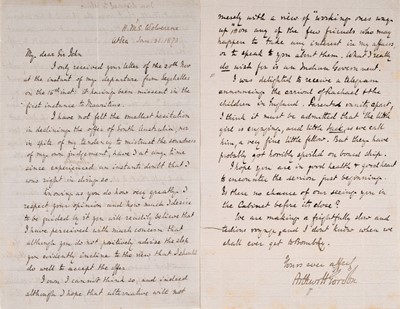 H.M.S. Wolverene
At Sea Jan. 31. 1873
My dear Sir John
I only received your letter of the 20th Nov
at the instant of my departure from Seychelles
on the 16th inst. it having been missent in the
first instance to Mauritius.
I have not felt the smallest hesitation
in declining the offer of South Australia, nor
in spite of my tendency to mistrust the soundness
of my own judgement, have I at any time
since experienced an instant's doubt that I
was right in doing so.
Knowing as you do how very greatly I
respect your opinion and how much I desire
to be guided by it you will readily believe that
I have perceived with much concern that
although you do not positively advise the step
you evidently incline to the view that I should
do well to accept the offer.
I own I cannot think so, and indeed
although I hope that alternative will not
merely with a view of "working ones way
up" Should any of the few friends who may
happen to take any interest in my affairs,
or to speak to you about them. What I really
do wish for is an Indian Government.
I was delighted to receive a telegram
announcing the arrival of Rachel & the
children in England. Parental vanity apart,
I think it must be admitted that the little
girl is engaging, and little as we call
him, a very fine little fellow. But they have
probably got horribly spoiled on board ship.
I hope you are in good health & good heart
to encounter the session just beginning.
Is there no chance of our seeing you in
the Cabinet before its close?
We are making a frightfully slow and
tedious voyage and I don't know when we
shall ever get to Bombay.
Yours ever affectly.
Arthur H Gordon